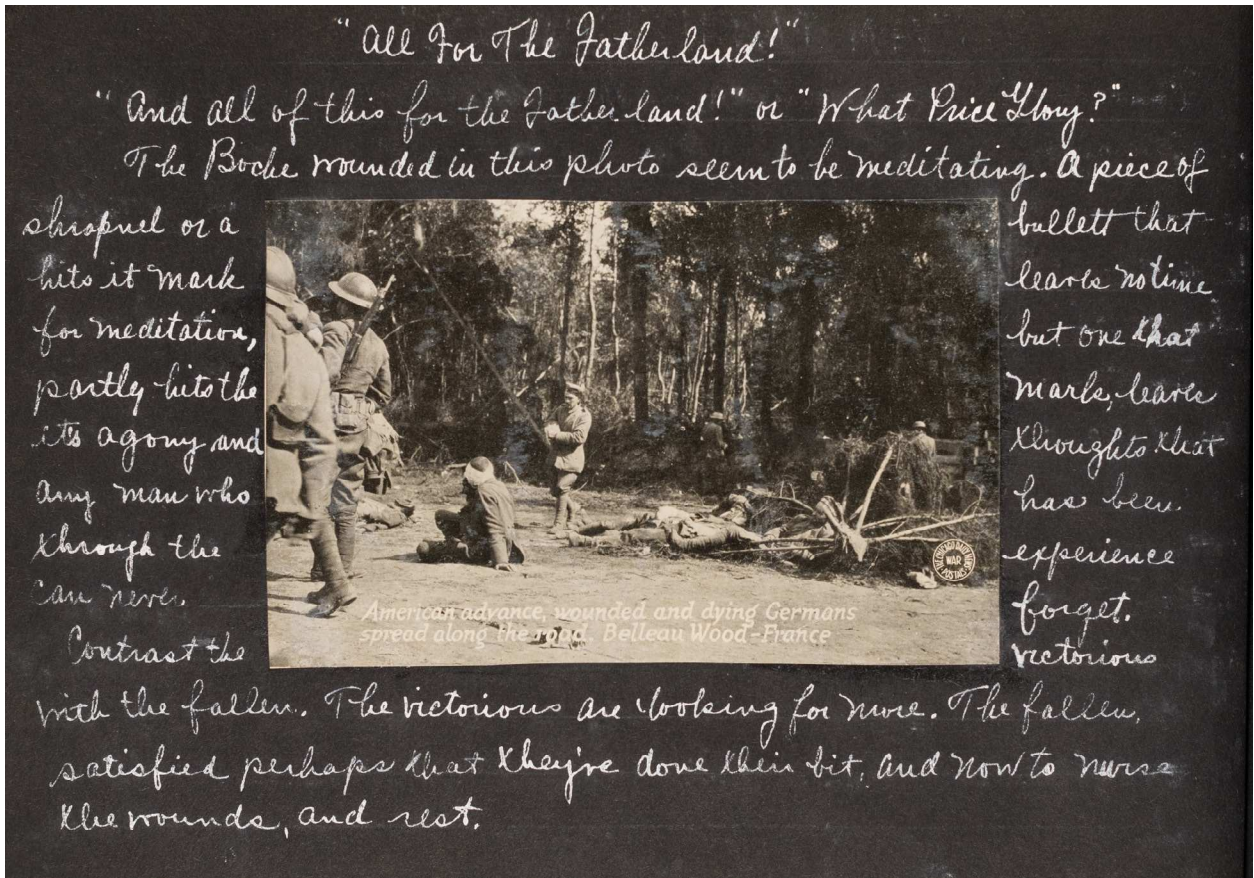 "All For The Fatherland!"
"And all of this for the Fatherland!" or "What Price Glory?"
The Boche wounded in this photo seem to be meditating. A piece of
shrapnel or a bullett that
hits it mark leaves no time
for meditation, but one that
partly hits the mark, leaves
it's agony and thoughts that
any man who has been
through the experience
can never forget.
Contrast the victorious
with the fallen. The victorious are looking for more. The fallen,
satisfied perhaps that they're done their bit, and now to nurse
the wounds, and rest.
American advance, wounded and dying Germans
spread along the road. Belleau Wood-France
THE CHICAGO DAILY NEWS
WAR
POSTALS